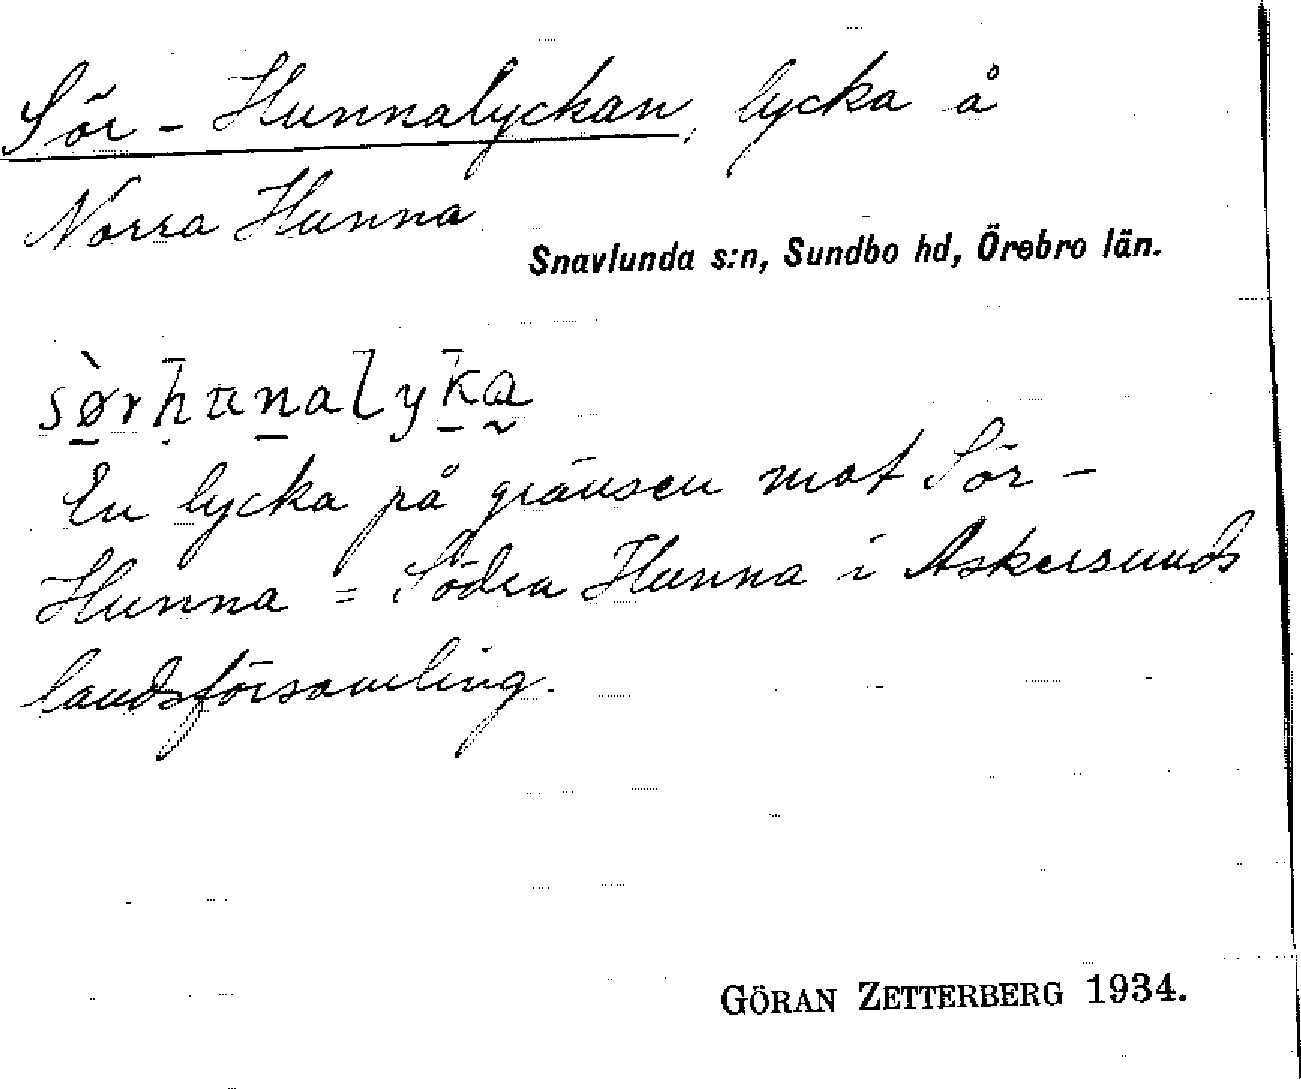 Sör-Hunnalyckan, lycka å
Norra Hunna
Snavlunda s:n, Sundbo hd, Örebro län.
sø̱̀rhuṉaly̱ḵa̰
En lycka på gränsen mot Sör-
Hunna = Södra Hunna i Askersunds
landsförsamling.
GÖRAN ZETTERBERG 1934.